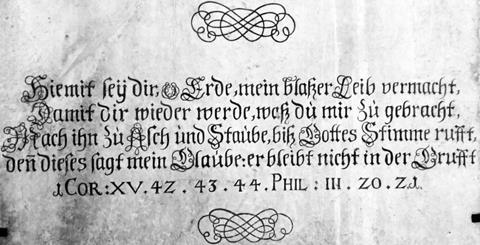 Hiemit seÿ dir, O Erde, mein blaßer Leib vermacht,
Damit dir wieder werde, waß dù mir Zù gebracht,
Mach ihn Zù Asch ùnd Staùbe, biß Gottes Stimme rùfft,
deñ dieses sagt mein Glaùbe: er bleibt nicht in der Grùfft
1 COR: XV. 42. 43. 44. PHIL: III. 20. 21.